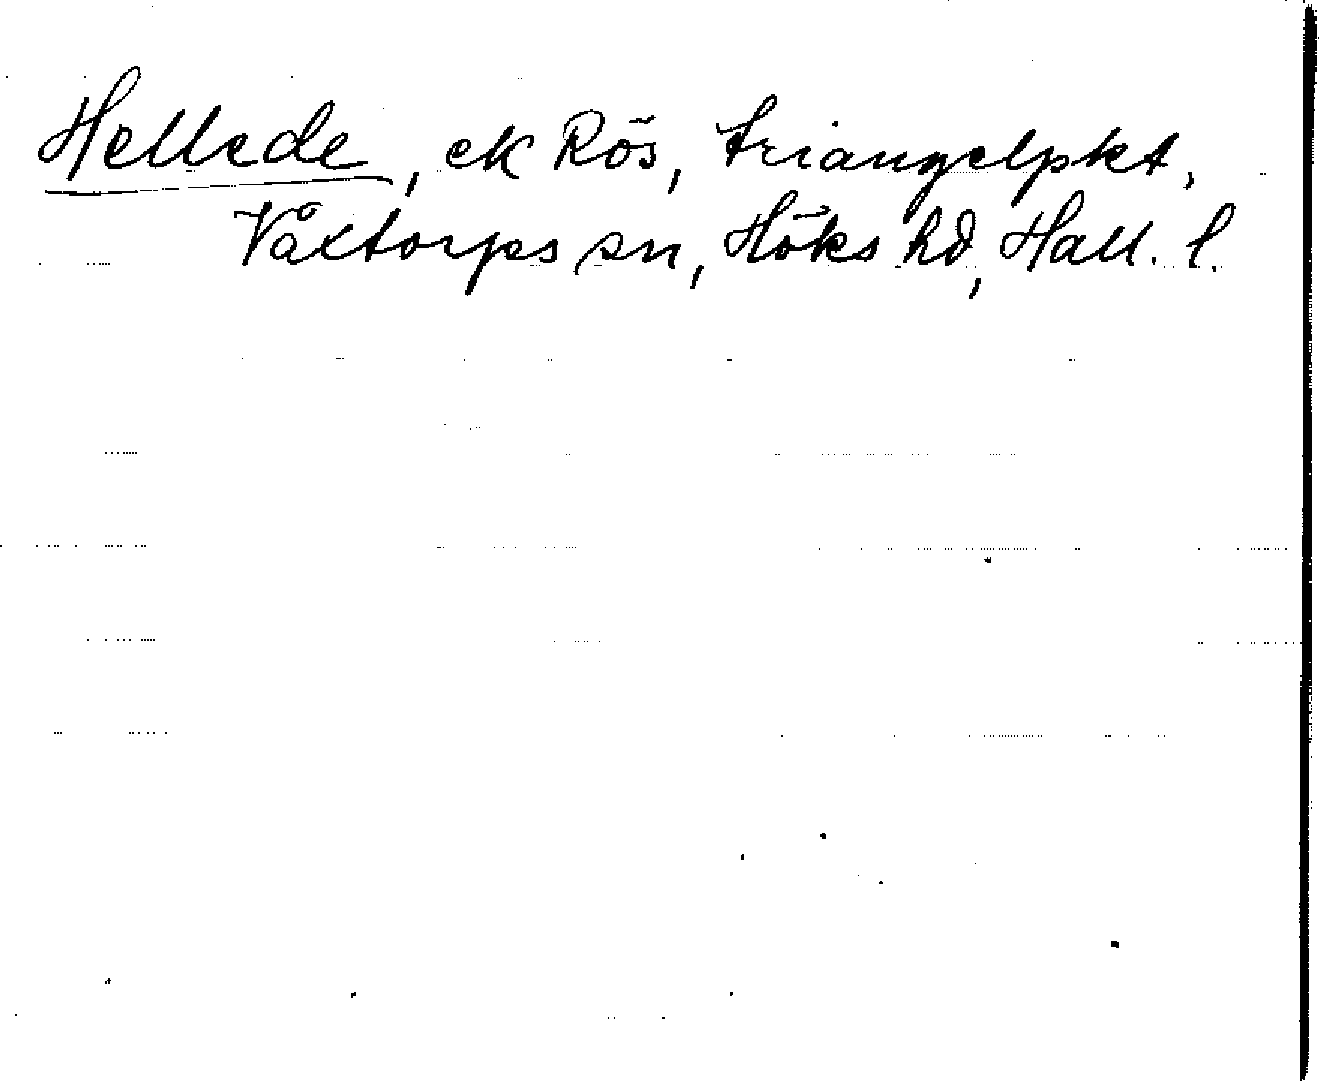 Hellede, ek Rös, triangelpkt,
Våxtorps sn, Höks hd, Hall. l.